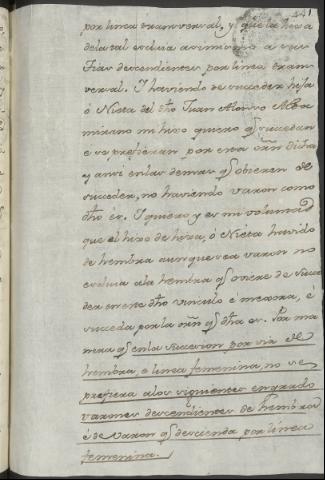 441
por linea tranversal, y que la hija
de la tal excluia asimismo a sus
Tias descendientes por linea tranv
versal. Y haviendo de succeder hija
ó Nieta del dho Juan Alonso
mirano mi hijo quiero q̃ sucedan
e se prefieran por esta orñ dicha
y ansi en las demas q̃ obieren de
suceder, no haviendo varon como
dho és. Y quiero y es mi voluntad
que el hijo de hija, ó Nieta havido
de hembra aunque sea varon no
excluia a la hembra q̃ oviere de suce
der en este dho vinculo e mejora, é
suceda por la orñ q̃ dha es. Por ma
nera q̃ en la sucesion por via de
hembra, e linea femenina, no se
prefiera a los siguientes en grado
varones descendientes de hembra
é de varon q̃ descienda por linea
femenina.